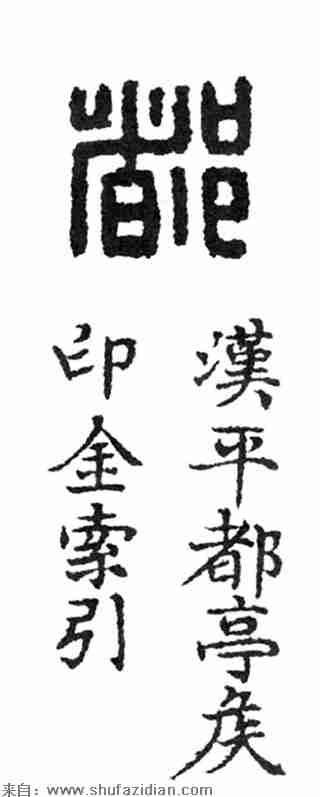 都
漢平都亭矦
印金索引
来自：www.shufazidian.com